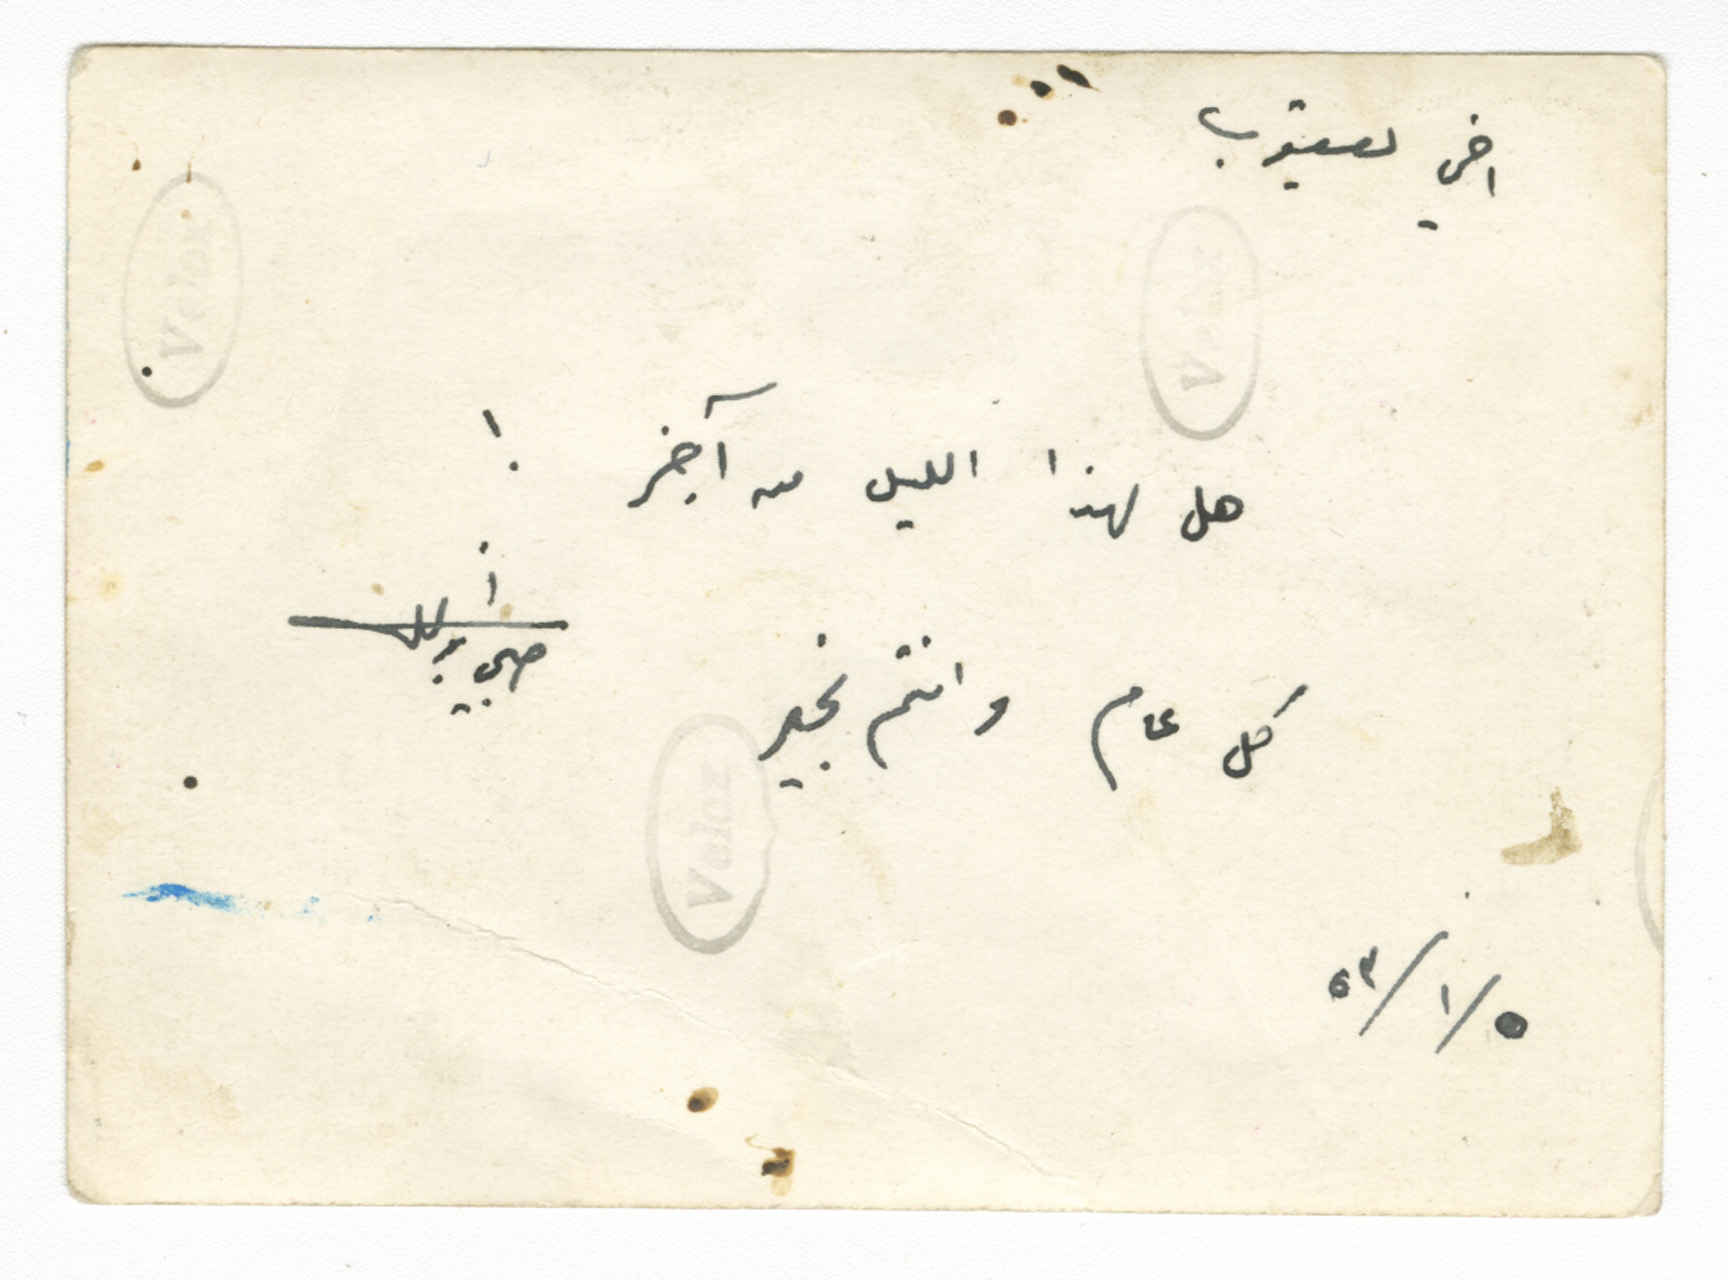 اخي يعقوب
هل لهذا الليل من آخر !
كل عام وانتم بخير
٥/١/٦٣
Velox
Velox
Velox